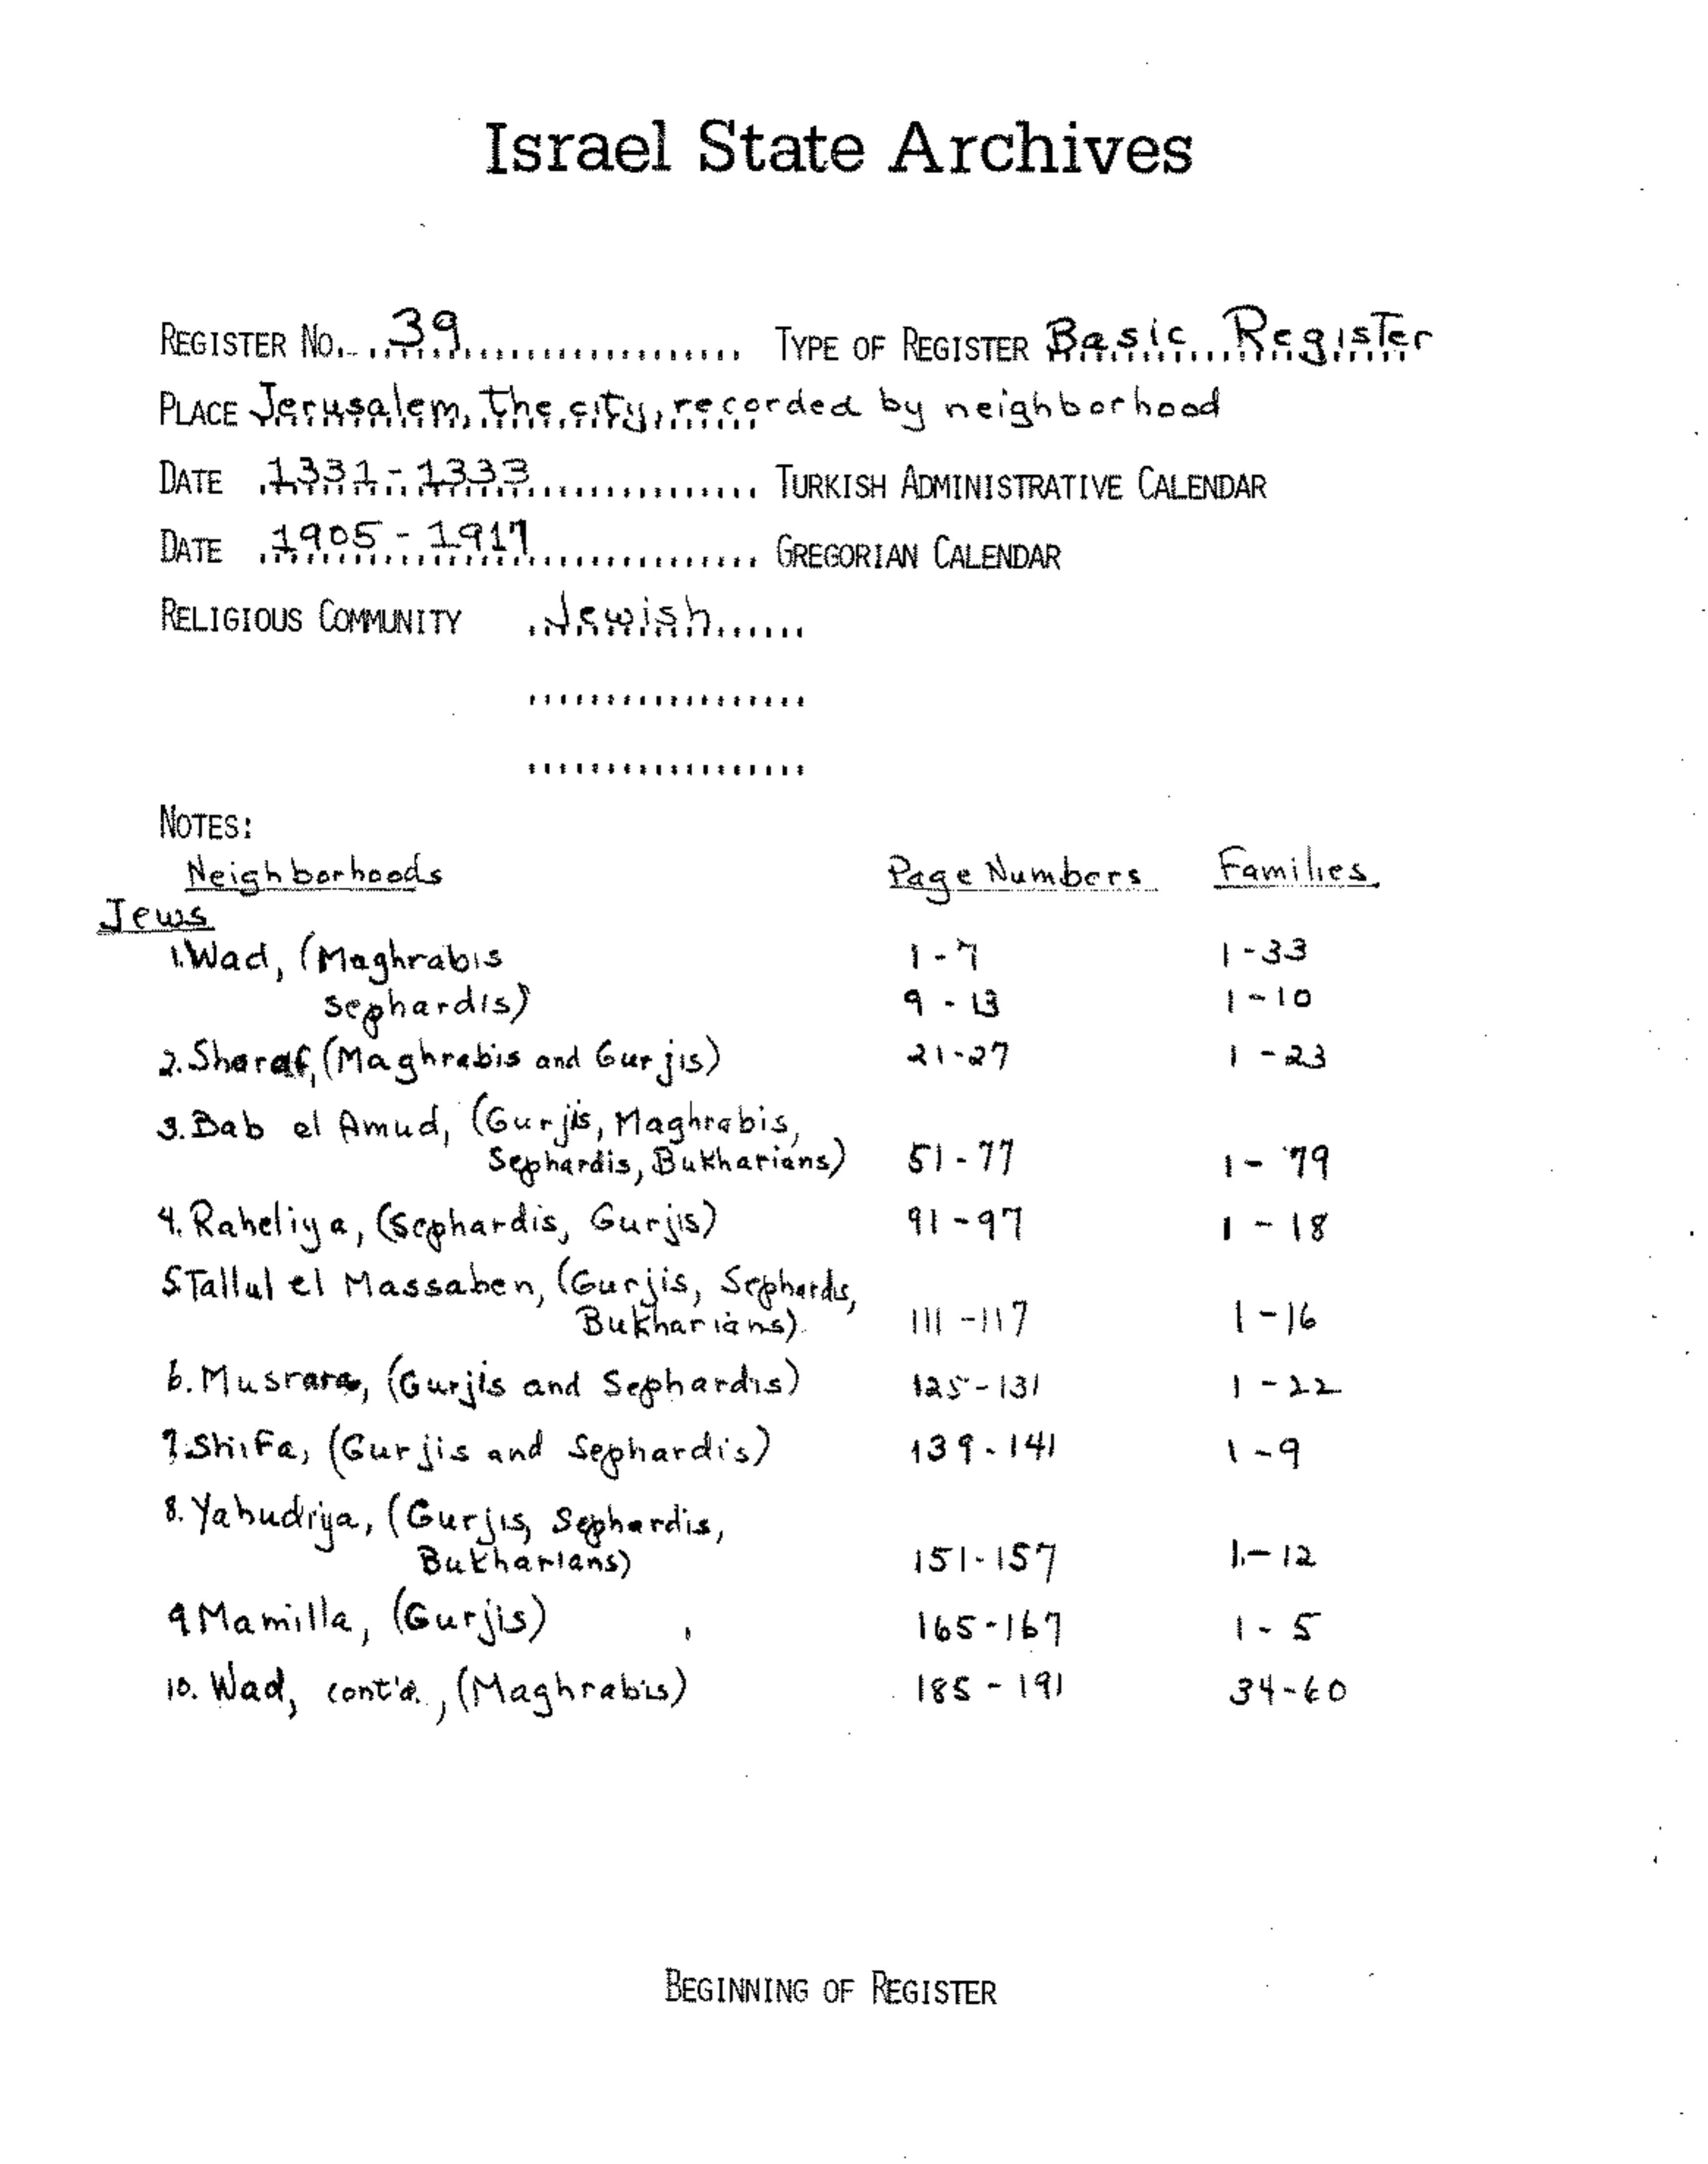 Israel State Archives
REGISTER NO. 39 TYPE OF REGISTER Basic Register
PLACE Jerusalem, the city, recorded by neighborhood
DATE 1331 - 1333 TURKISH ADMINISTRATIVE CALENDAR
DATE 1905 - 1917 GREGORIAN CALENDAR
RELIGIOUS COMMUNITY Jewish
NOTES:
Neighborhoods Page Numbers Families
Jews
1. Wad, (Maghrabis 1 - 7 1 - 33
Sephardis) 9 - 13 1 - 10
2. Sharaf, (Maghrabis and Gurjis) 21 - 27 1 - 23
3. Bab el Amud, (Gurjis, Maghrabis,
Sephardis, Bukharians) 51 - 77 1 - 79
4. Raheliya, (Sephardis, Gurjis) 91 - 97 1 - 18
5. Tallul el Massaben, (Gurjis, Sephardis,
Bukharians) 111 - 117 1 - 16
6. Musrara, (Gurjis and Sephardis) 125 - 131 1 - 22
7. Shifa, (Gurjis and Sephardis) 139 - 141 1 - 9
8. Yahudiya, (Gurjis, Sephardis,
Bukharians) 151 - 157 1 - 12
9 Mamilla, (Gurjis) 165 - 167 1 - 5
10. Wad, cont'd., (Maghrabis) 185 - 191 34 - 60
BEGINNING OF REGISTER